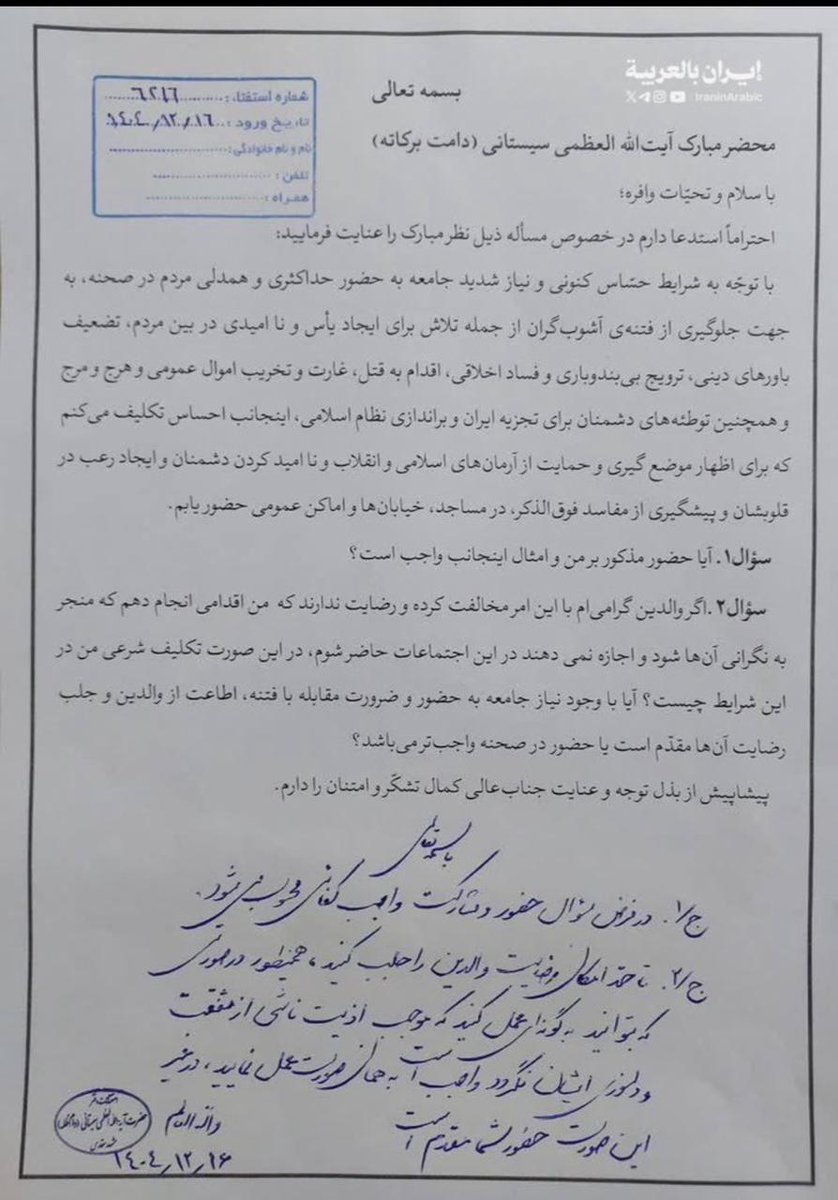 إيران بالعربية
IraninArabic
شماره استفتاء: ۶۲۱۶
تاریخ ورود: ۱۴۰۴/۱۲/۱۶
نام و نام خانوادگی:
تلفن:
همراه:
بسمه تعالی
محضر مبارک آیت‌الله العظمی سیستانی (دامت برکاته)
با سلام و تحیّات وافره؛
احتراماً استدعا دارم در خصوص مسأله ذیل نظر مبارک را عنایت فرمایید:
با توجّه به شرایط حسّاس کنونی و نیاز شدید جامعه به حضور حداکثری و همدلی مردم در صحنه، به
جهت جلوگیری از فتنه‌ی آشوب‌گران از جمله تلاش برای ایجاد یأس و نا امیدی در بین مردم، تضعیف
باورهای دینی، ترویج بی‌بندوباری و فساد اخلاقی، اقدام به قتل، غارت و تخریب اموال عمومی و هرج و مرج
و همچنین توطئه‌های دشمنان برای تجزیه ایران و براندازی نظام اسلامی، اینجانب احساس تکلیف می‌کنم
که برای اظهار موضع گیری و حمایت از آرمان‌های اسلامی و انقلاب و نا امید کردن دشمنان و ایجاد رعب در
قلوبشان و پیشگیری از مفاسد فوق‌الذکر، در مساجد، خیابان‌ها و اماکن عمومی حضور یابم.
سؤال۱. آیا حضور مذکور بر من و امثال اینجانب واجب است؟
سؤال۲. اگر والدین گرامی‌ام با این امر مخالفت کرده و رضایت ندارند که من اقدامی انجام دهم که منجر
به نگرانی آن‌ها شود و اجازه نمی دهند در این اجتماعات حاضر شوم، در این صورت تکلیف شرعی من در
این شرایط چیست؟ آیا با وجود نیاز جامعه به حضور و ضرورت مقابله با فتنه، اطاعت از والدین و جلب
رضایت آن‌ها مقدّم است یا حضور در صحنه واجب‌تر می‌باشد؟
پیشاپیش از بذل توجه و عنایت جناب‌عالی کمال تشکّر و امتنان را دارم.
باسمه تعالی
ج/۱. در فرض سؤال حضور و مشارکت واجب کفائی محسوب می شود.
ج/۲. تا حدّ امکان رضایت والدین را جلب کنید، همینطور در صورتی
که بتوانید به گونه‌ای عمل کنید که موجب اذیت ناشی از شفقت
و دلسوزی ایشان نگردد واجب است به همان صورت عمل نمایید، در غیر
این صورت حضور شما مقدم است
والله العالم
۱۴۰۴/۱۲/۱۶